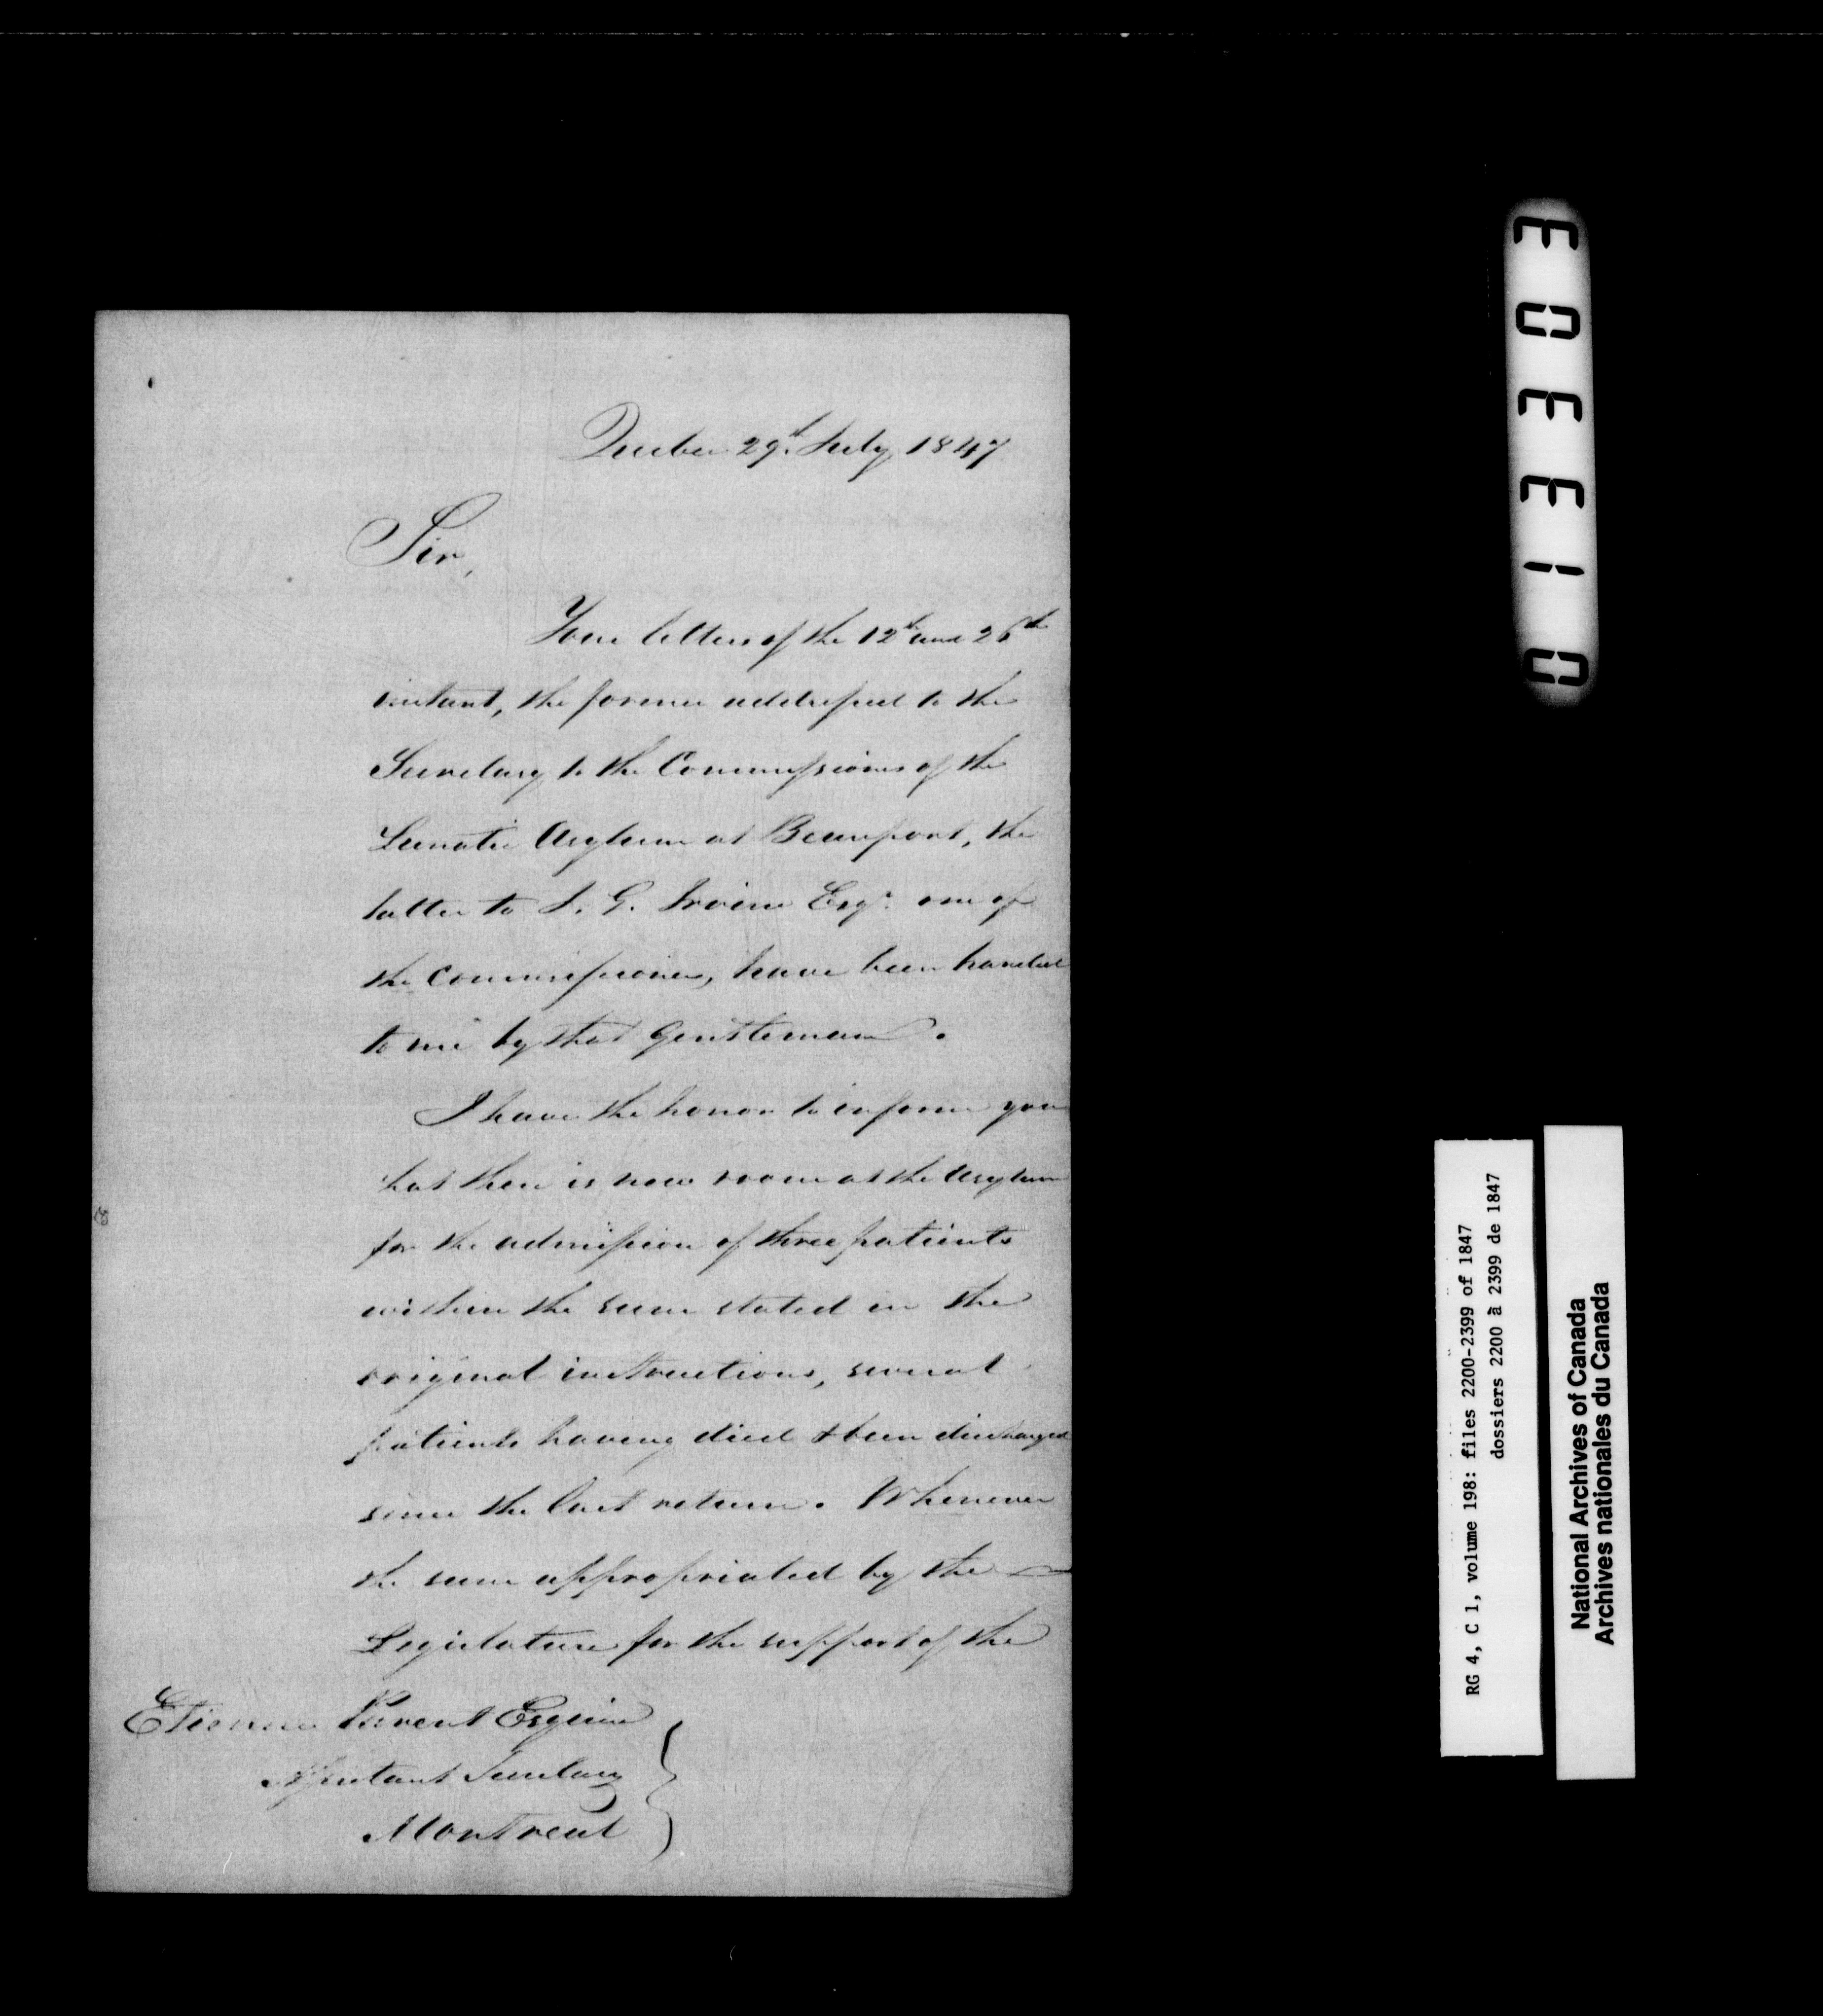 Quebec 29th July 1847
Sir,
Your letters of the 12th and 26th
instant, the former addressed to the
Secretary to the Commissioners of the
Lunatic Asylum at Beauport, the
latter to J. G. Irvine Esqr. one of
the Commissioners, have been handed
to me by that Gentleman.
I have the honor to inform you
that there is now room at the Asylum
for the admission of three patients
within the sum stated in the
original instructions, several
patients having died & been discharged
since the last return. Whenever
the sum appropriated by the
Legislature for the support of the
Etienne Parent Esquire
Assistant Secretary
Montreal
013303
RG 4, C 1, volume 198: files 2200-2399 of 1847
dossiers 2200 à 2399 de 1847
National Archives of Canada
Archives nationales du Canada